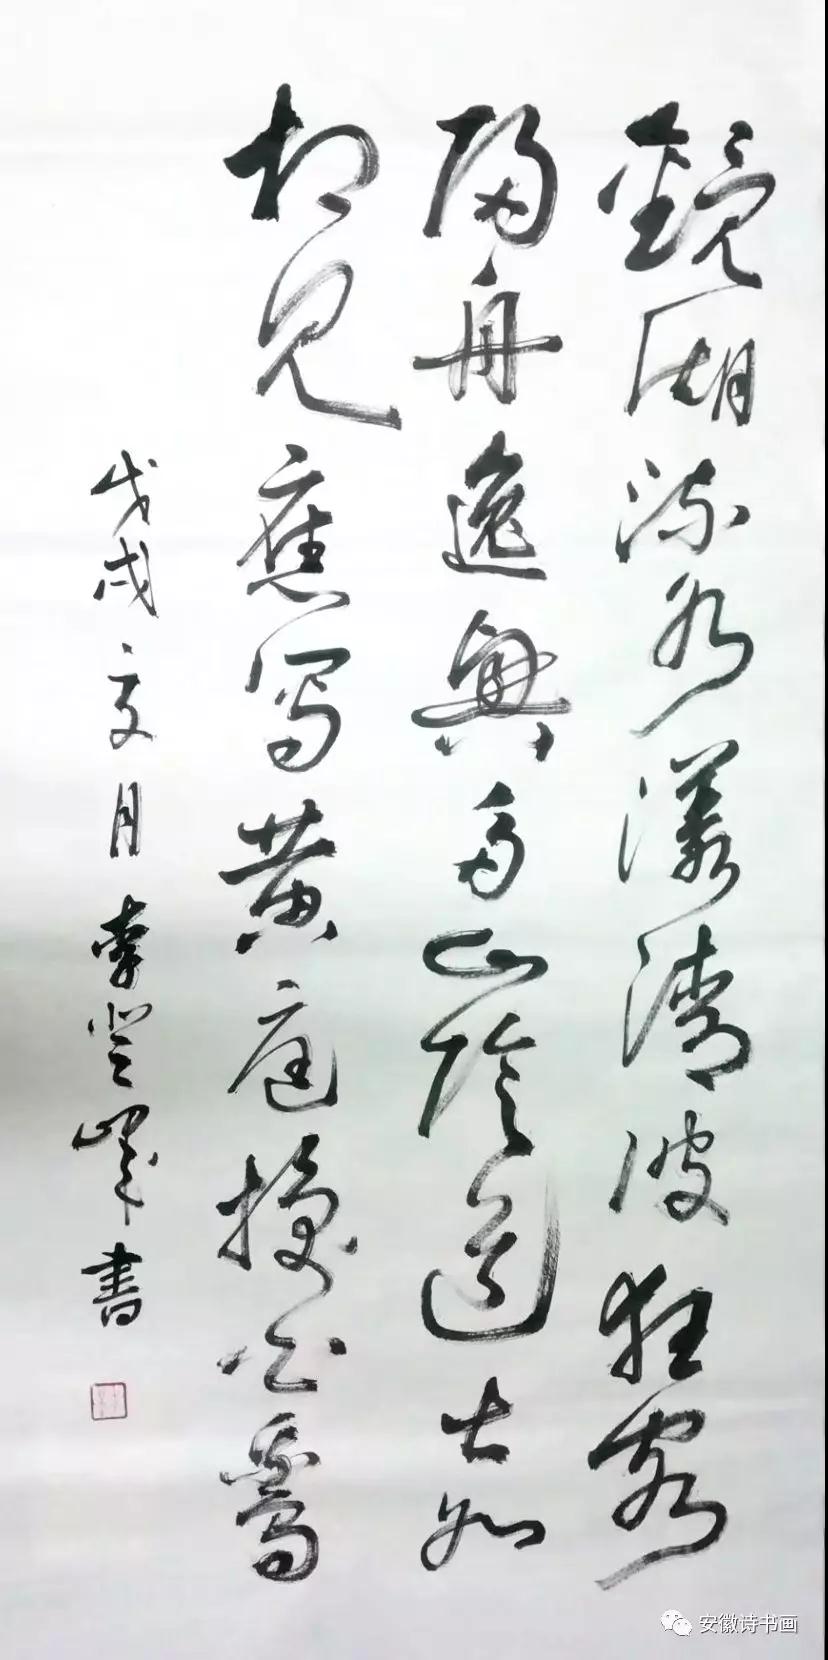 鏡湖流水漾清波狂客
歸舟逸興多山陰道士如
相見應写黄庭換白鵞
戊戌夏月李登峯書
安徽诗书画